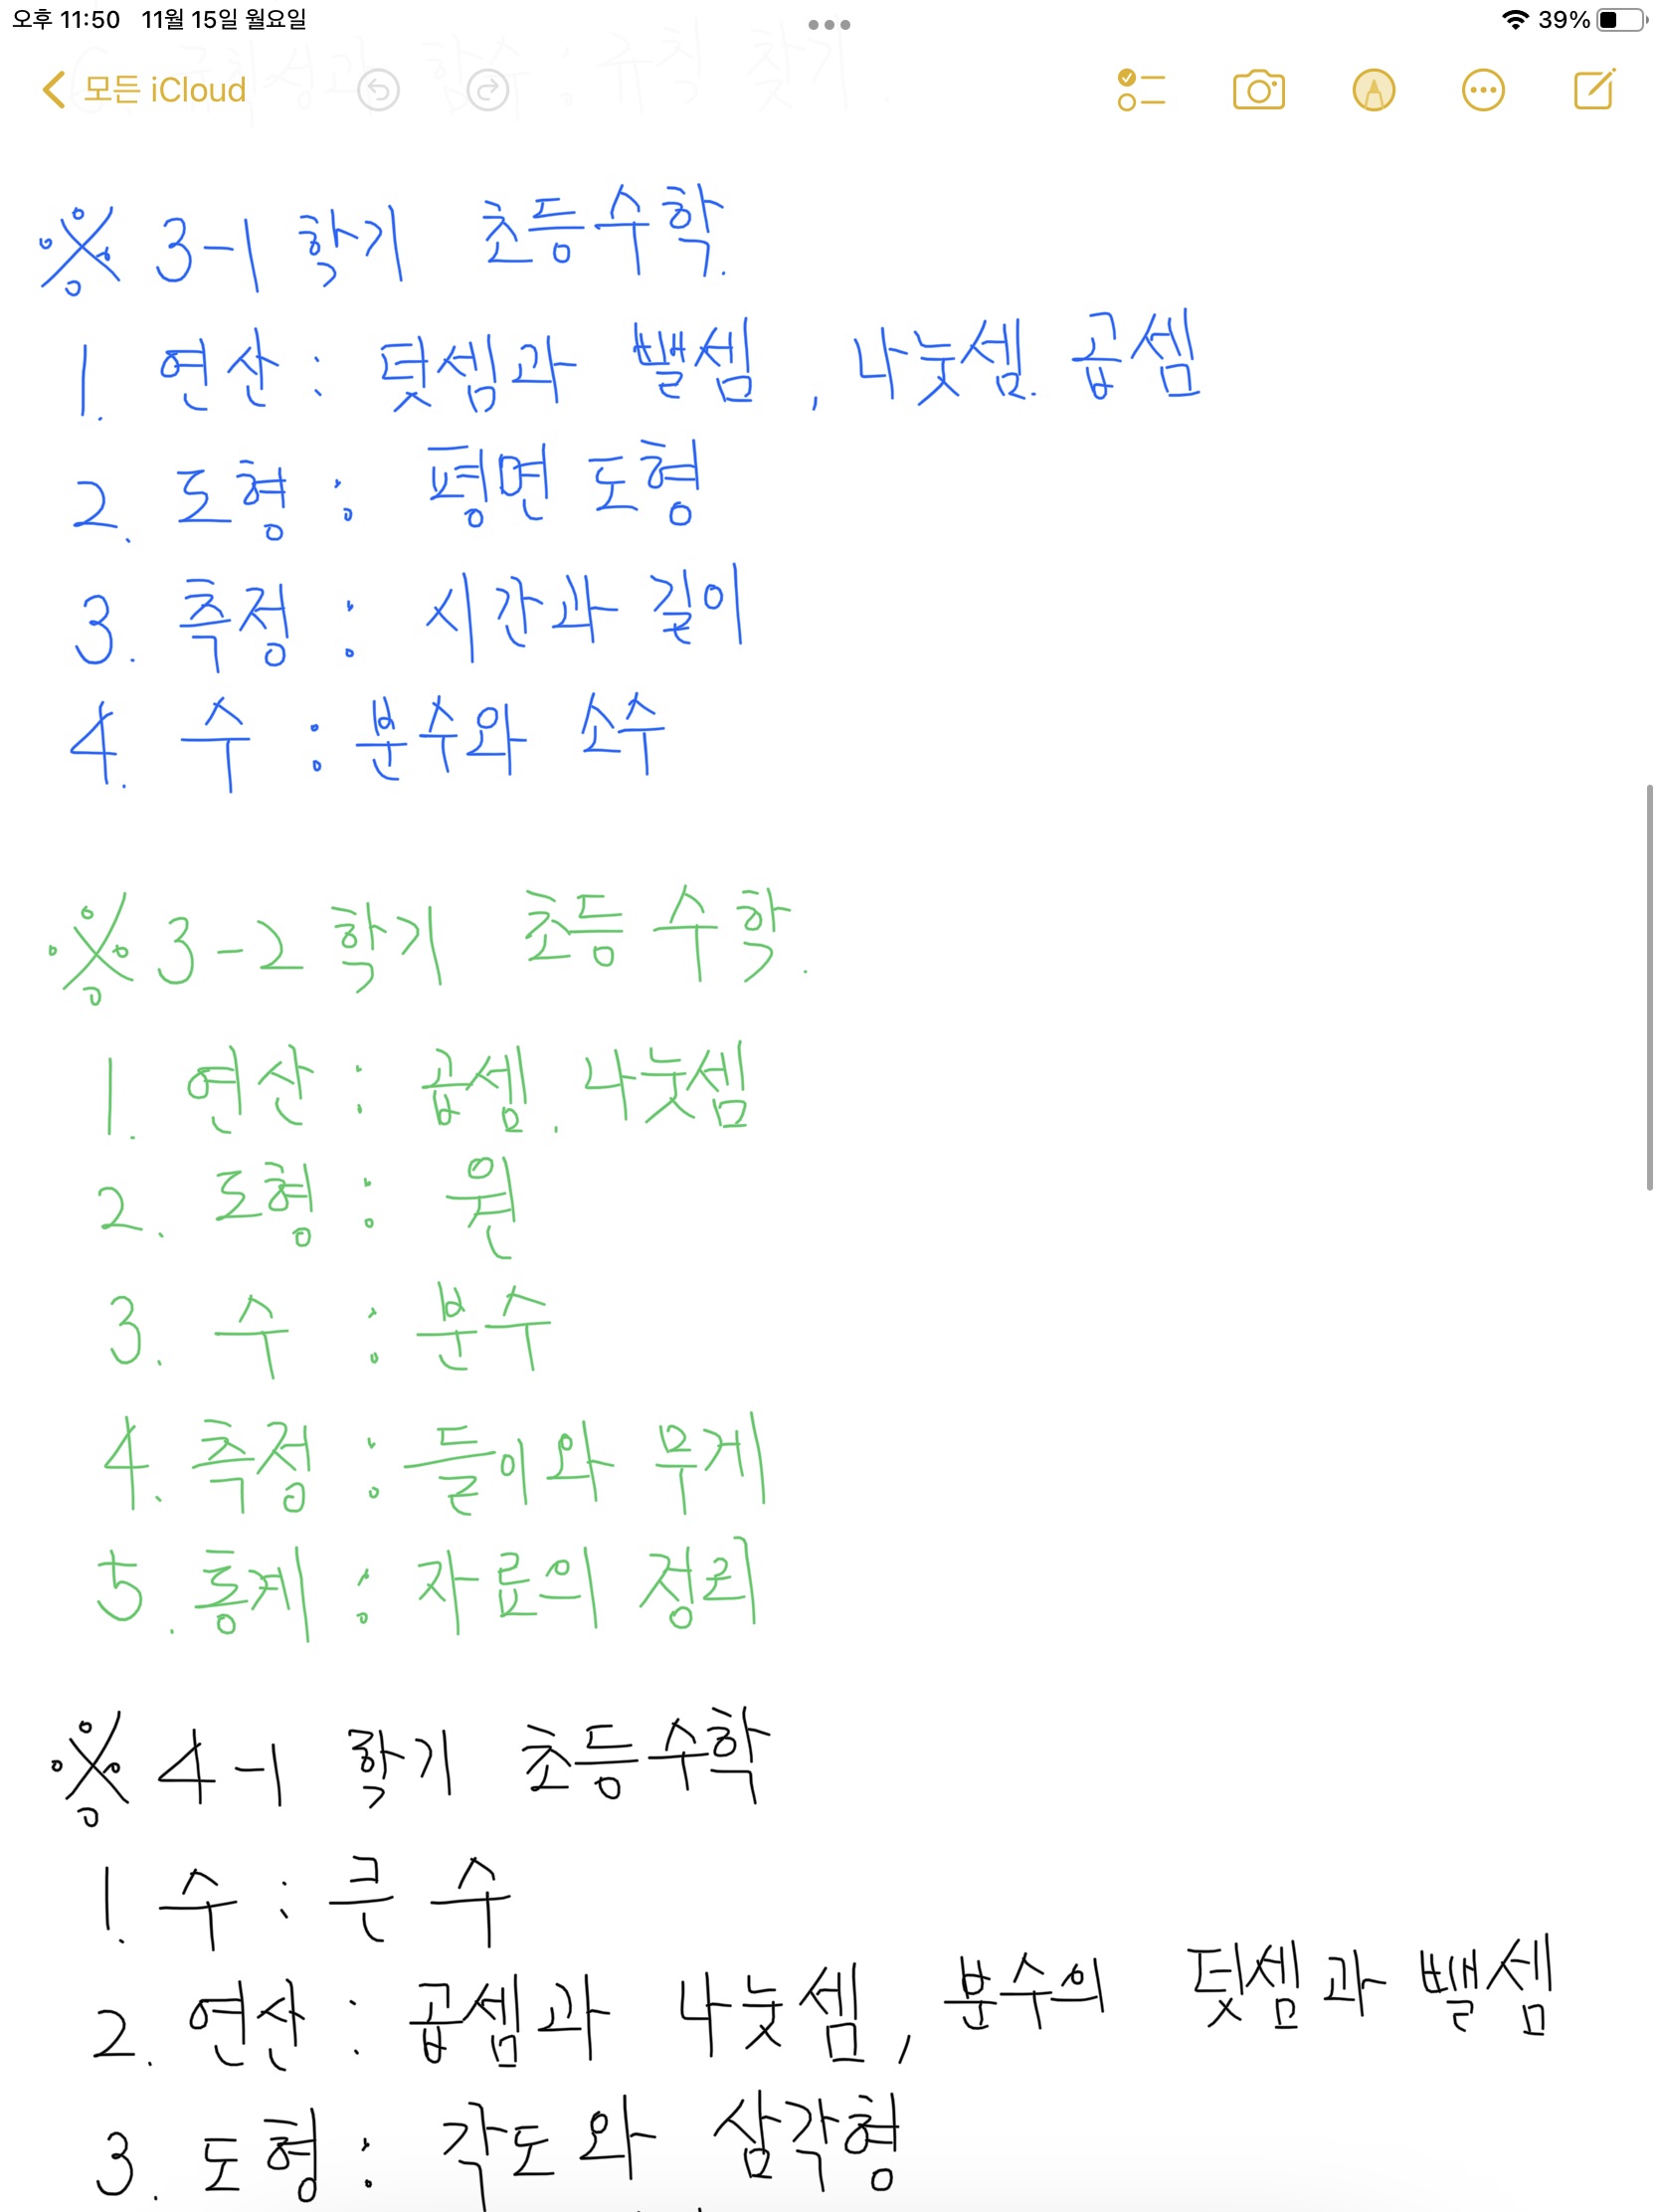 오후 11:50 11월 15일 월요일 39%
모든 iCloud
※ 3-1 학기 초등수학.
1. 연산 : 덧셈과 뺄셈, 나눗셈. 곱셈
2. 도형 : 평면 도형
3. 측정 : 시간과 길이
4. 수 : 분수와 소수
※ 3-2 학기 초등 수학.
1. 연산 : 곱셈. 나눗셈
2. 도형 : 원
3. 수 : 분수
4. 측정 : 들이와 무게
5. 통계 : 자료의 정리
※ 4-1 학기 초등수학
1. 수 : 큰 수
2. 연산 : 곱셈과 나눗셈, 분수의 덧셈과 뺄셈
3. 도형 : 각도와 삼각형